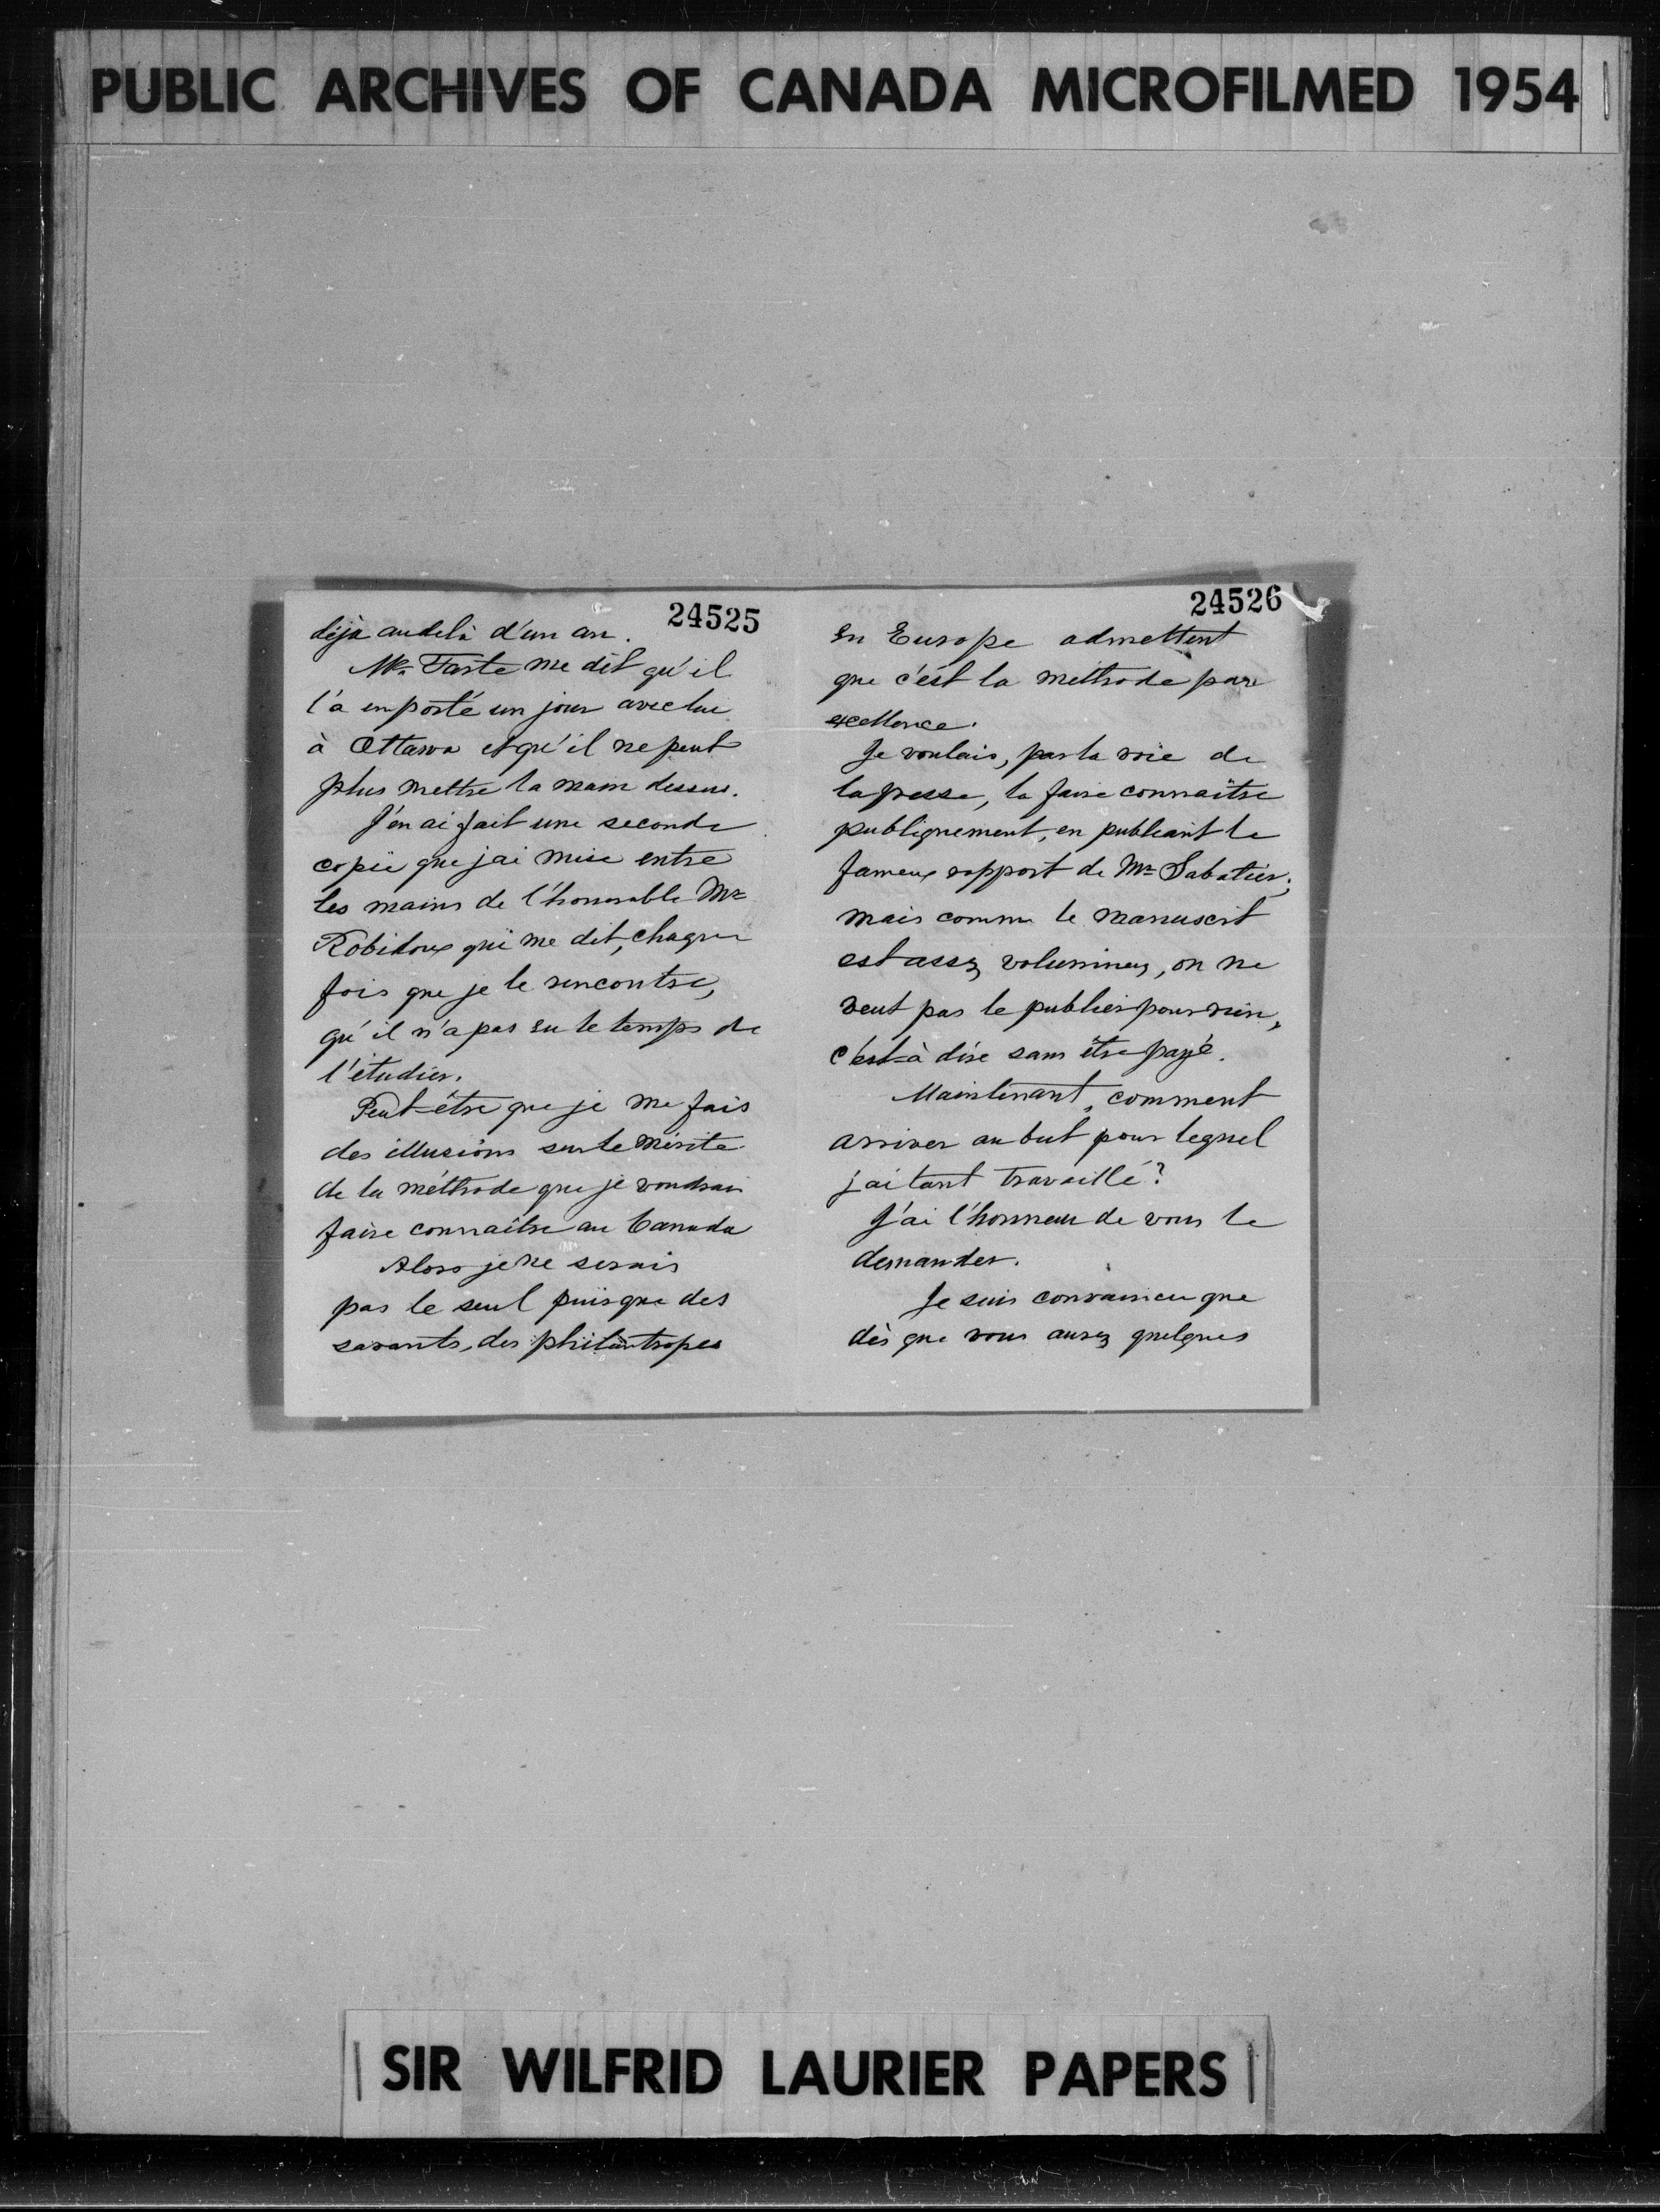 PUBLIC ARCHIVES OF CANADA MICROFILMED 1954
24525
déja audelà d'un an.
Mr. Tarte me dit qu'il
l'a emporté un jour avec lui
à Ottawa et qu'il ne peut
plus mettre la main dessus.
J'en ai fait une seconde
copie que j'ai mise entre
les mains de l'honorable Mr
Robidoux qui me dit, chaque
fois que je le rencontre,
qu'il n'a pas eu le temps de
l'étudier.
Peut-être que je me fais
des illusions sur le mérite
de la méthode que je voudrais
faire connaître au Canada
Alors je ne serais
pas le seul puisque des
savants, des philantropes
24526
en Europe admettent
que c'est la méthode par
excellence.
Je voulais, par la voie de
la presse, la faire connaître
publiquement, en publiant le
fameux rapport de Mr Sabatier;
mais comme le manuscrit
est assez volumineux, on ne
veut pas le publier pour rien,
c'est-à dire sans être payé.
Maintenant, comment
arriver au but pour lequel
j'ai tant travaillé?
J'ai l'honneur de vous le
demander.
Je suis convaincu que
dès que vous aurez quelques
SIR WILFRID LAURIER PAPERS